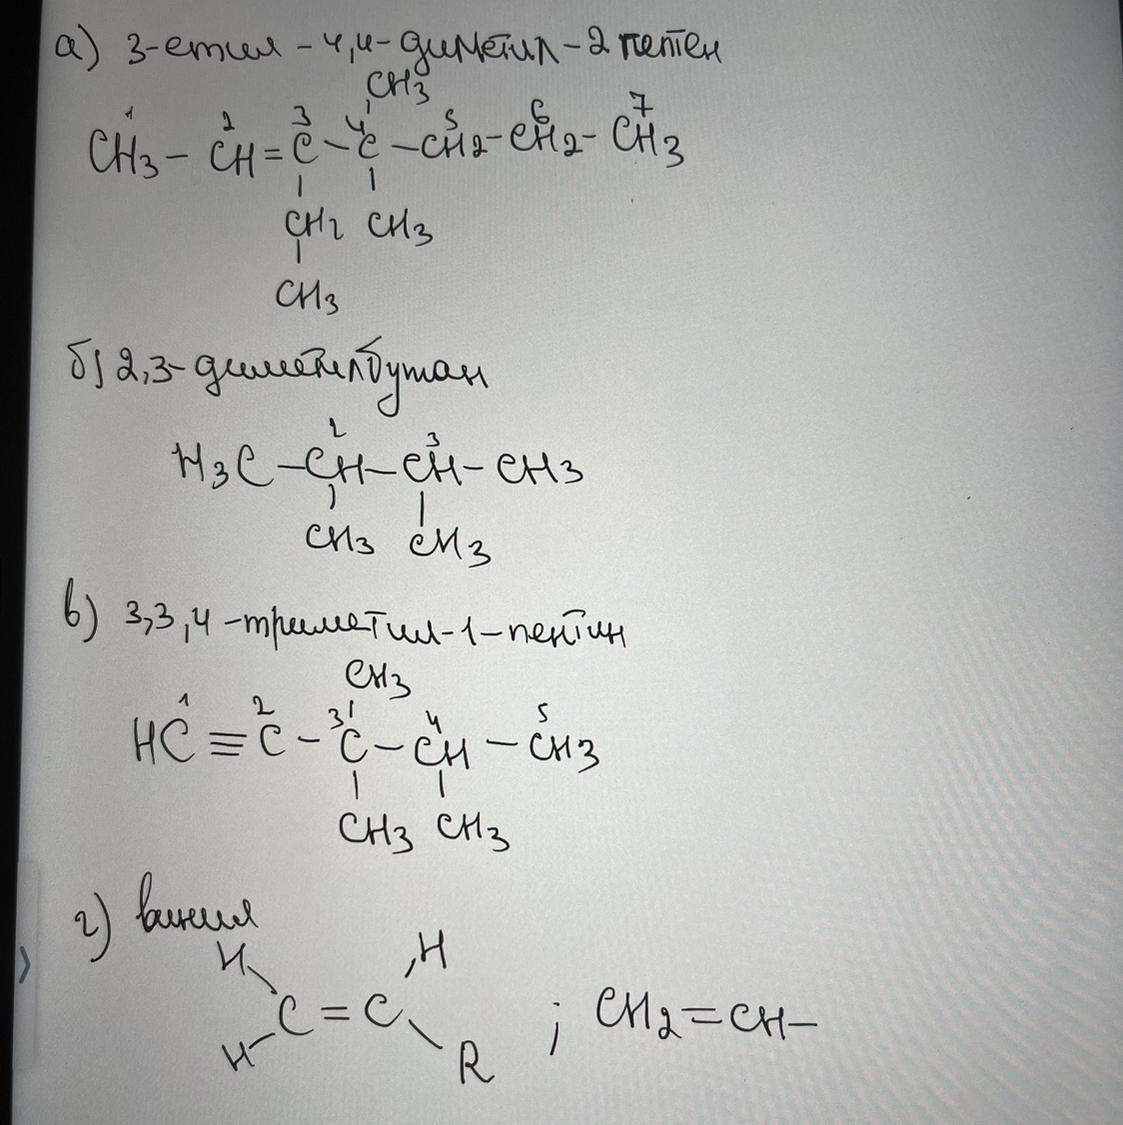 а) 3-етил-4,4-диметил-2 пентен
CH3
1 2 3 4 5 6 7
CH3-CH=C-C-CH2-CH2-CH3
CH2 CH3
CH3
б) 2,3-диметилбутан
2 3
H3C-CH-CH-CH3
CH3 CH3
в) 3,3,4-триметил-1-пентин
CH3
1 2 3 4 5
HC≡C-C-CH-CH3
CH3 CH3
г) винил
H H
C=C ; CH2=CH-
H R